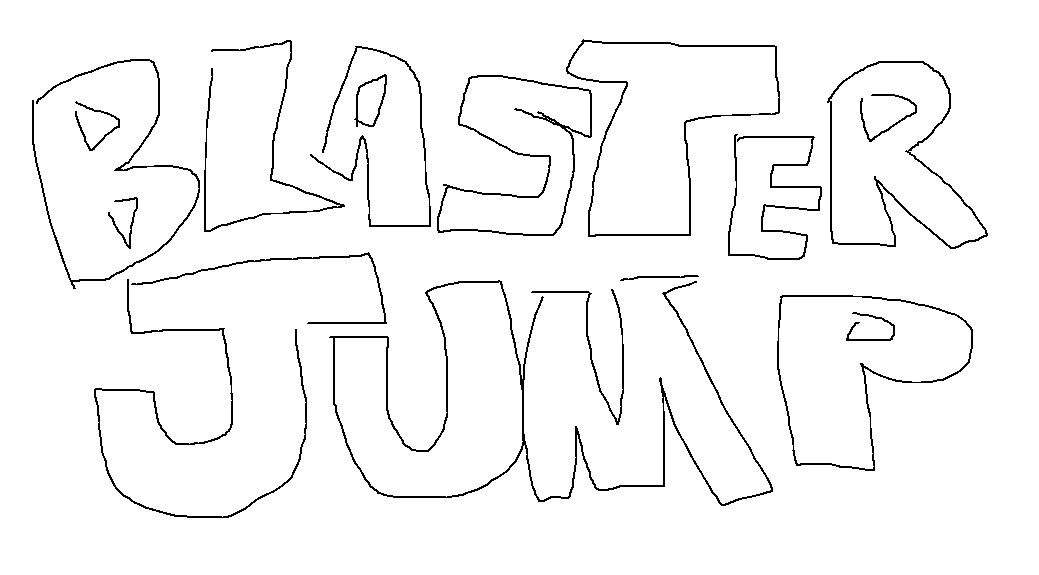 BLASTER
JUMP